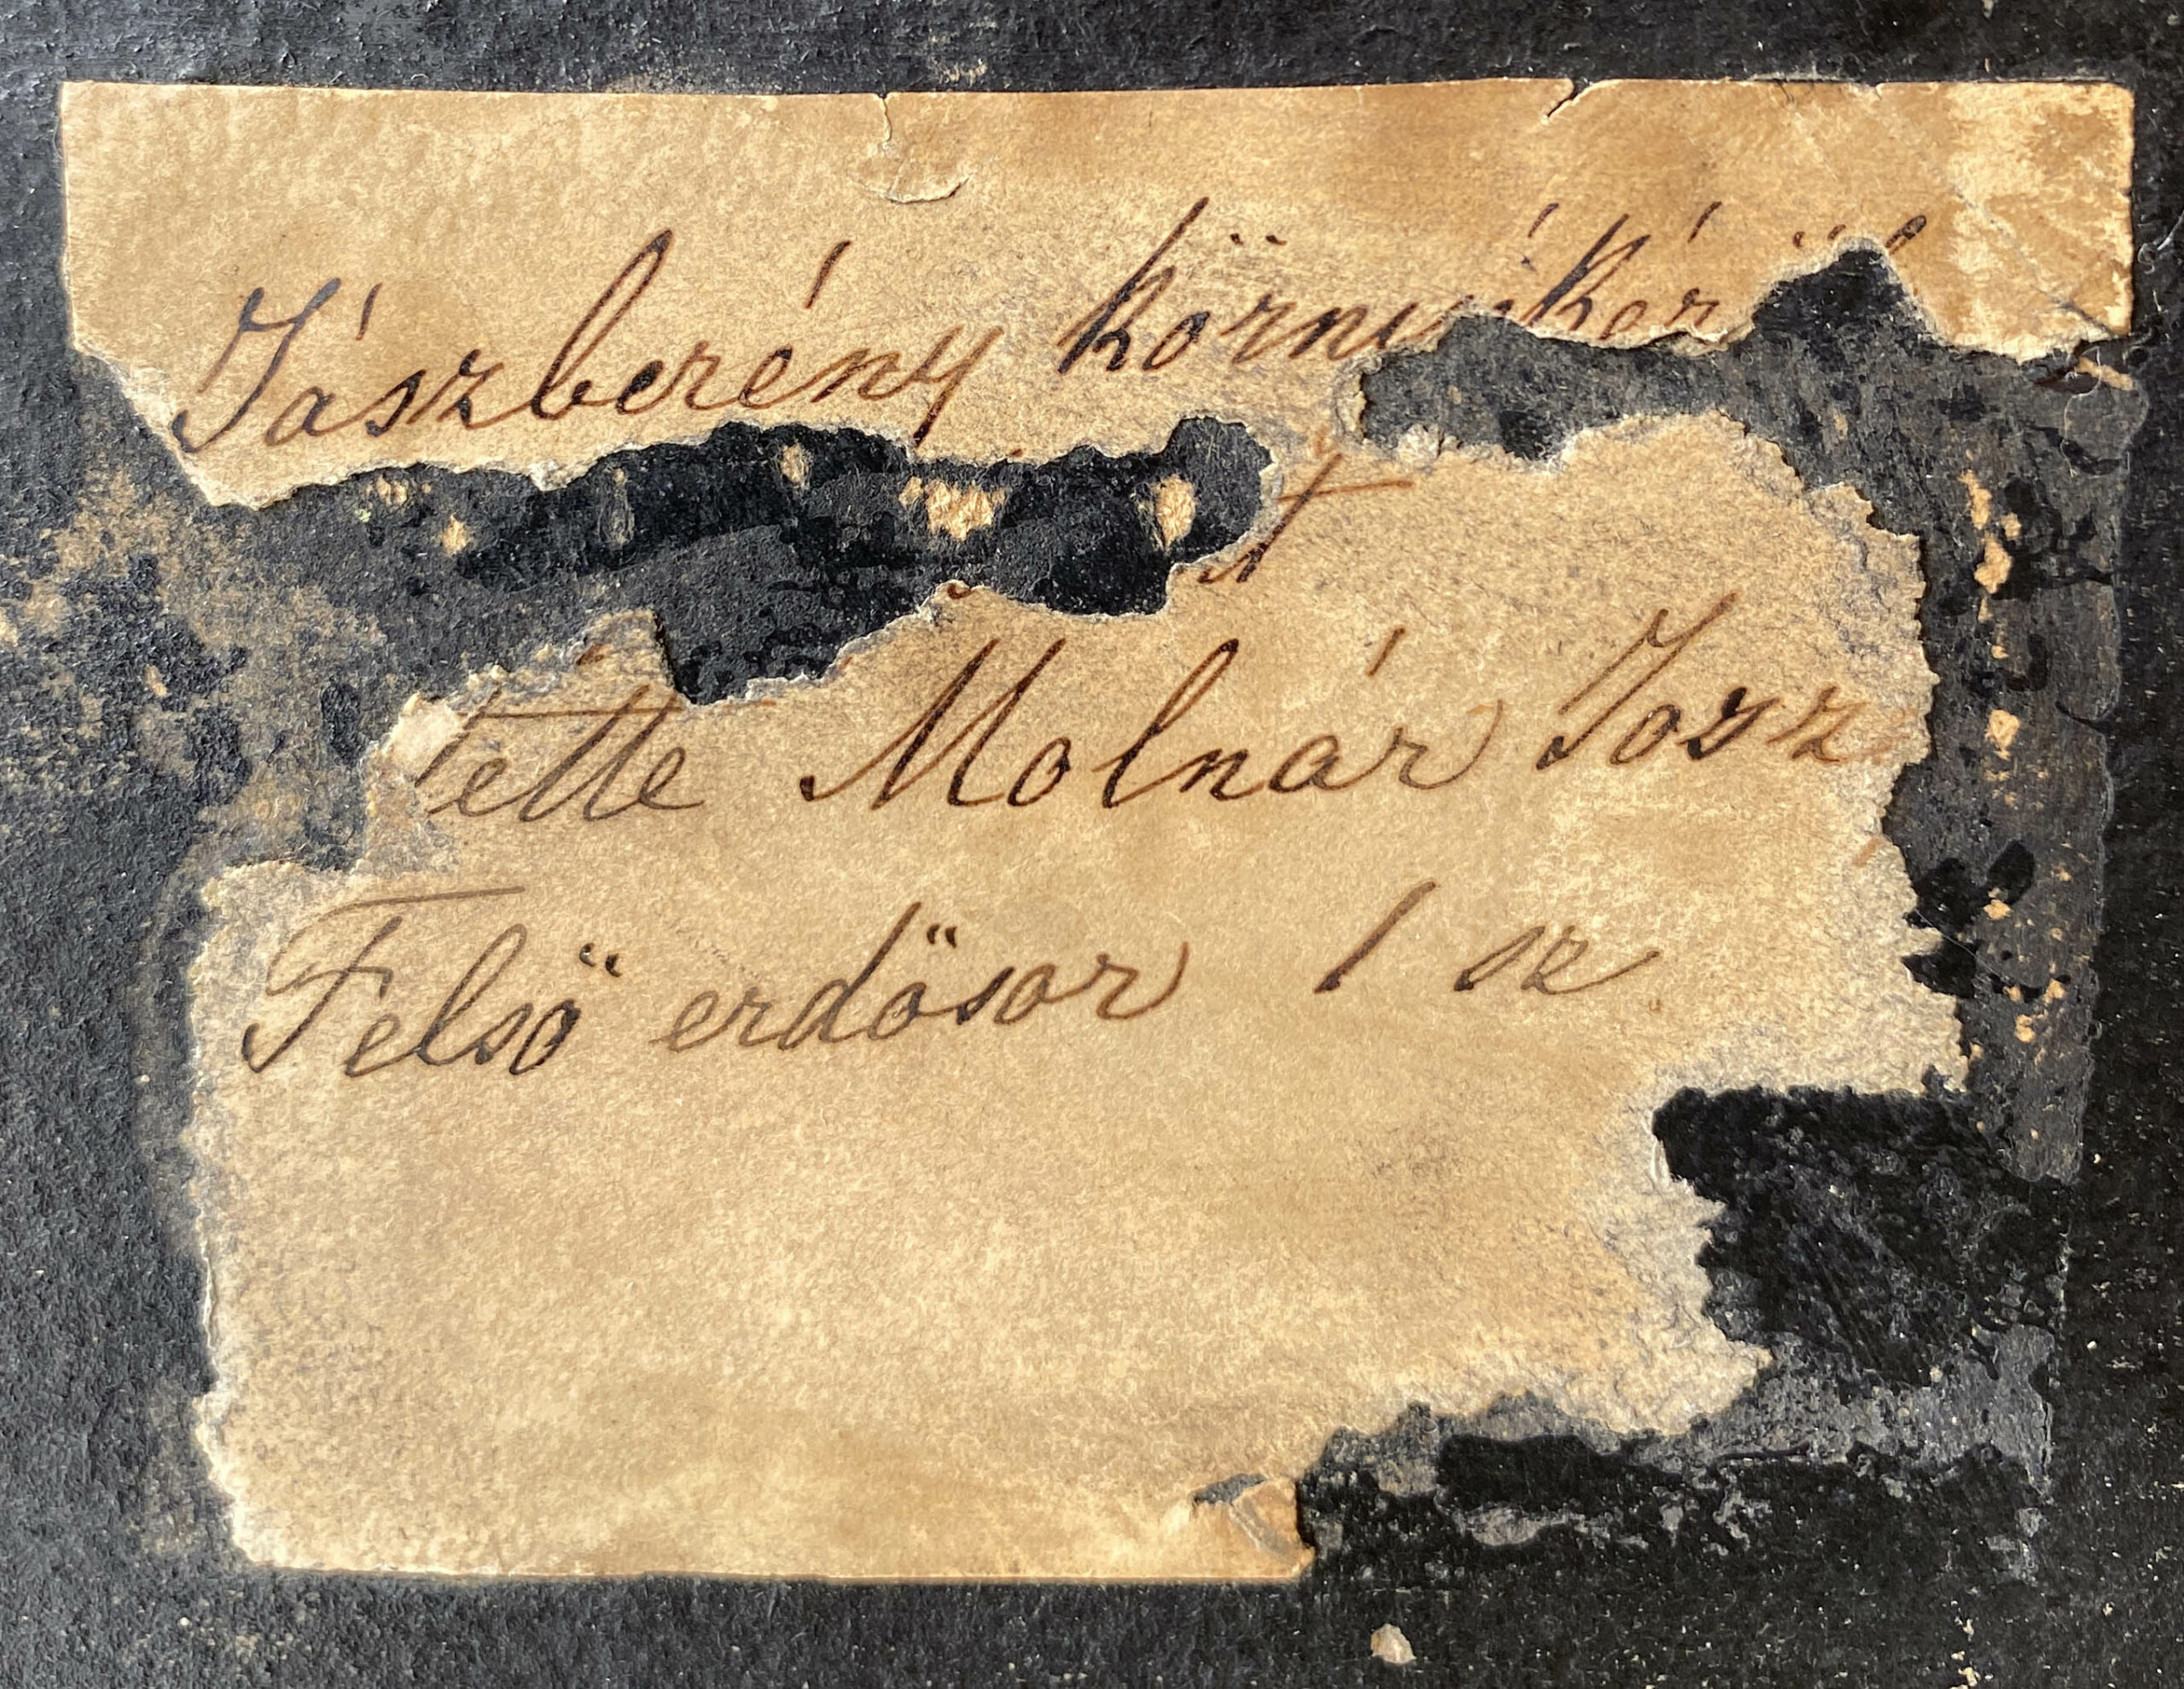 Jászberény környékéről
t
tette Molnár Josz
Felső erdősor 1 sz